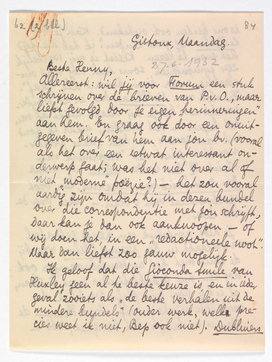 84
Gistoux, Maandag.
27.6.1932
Beste Henny,
Allereerst: wil jij voor Forum een stuk
schrijven over de brieven van P.v.O., maar
liefst gevolgd door je eigen herinneringen
aan hem. En graag ook door een onuit-
gegeven brief van hem aan jou bv. (vooral
als het over een ietwat interessant on-
derwerp gaat; was het niet over al of
niet moderne poëzie?) — het zou vooral
aardig zijn omdat hij in deren bundel
over die correspondentie met jou schrijft,
daar kan je dan ook aanknoopen — of
wij doen het, in een "redactioneele noot".
Maar dan liefst zoo gauw mogelijk.
Ik geloof dat die Gioconda Smile van
Huxley geen al te beste keuze is, en in ieder
geval zooiets als "de beste verhalen uit de
mindere bundels" (ouder werk, welke pre-
cies weet ik niet, Bep ook niet). Dubliners